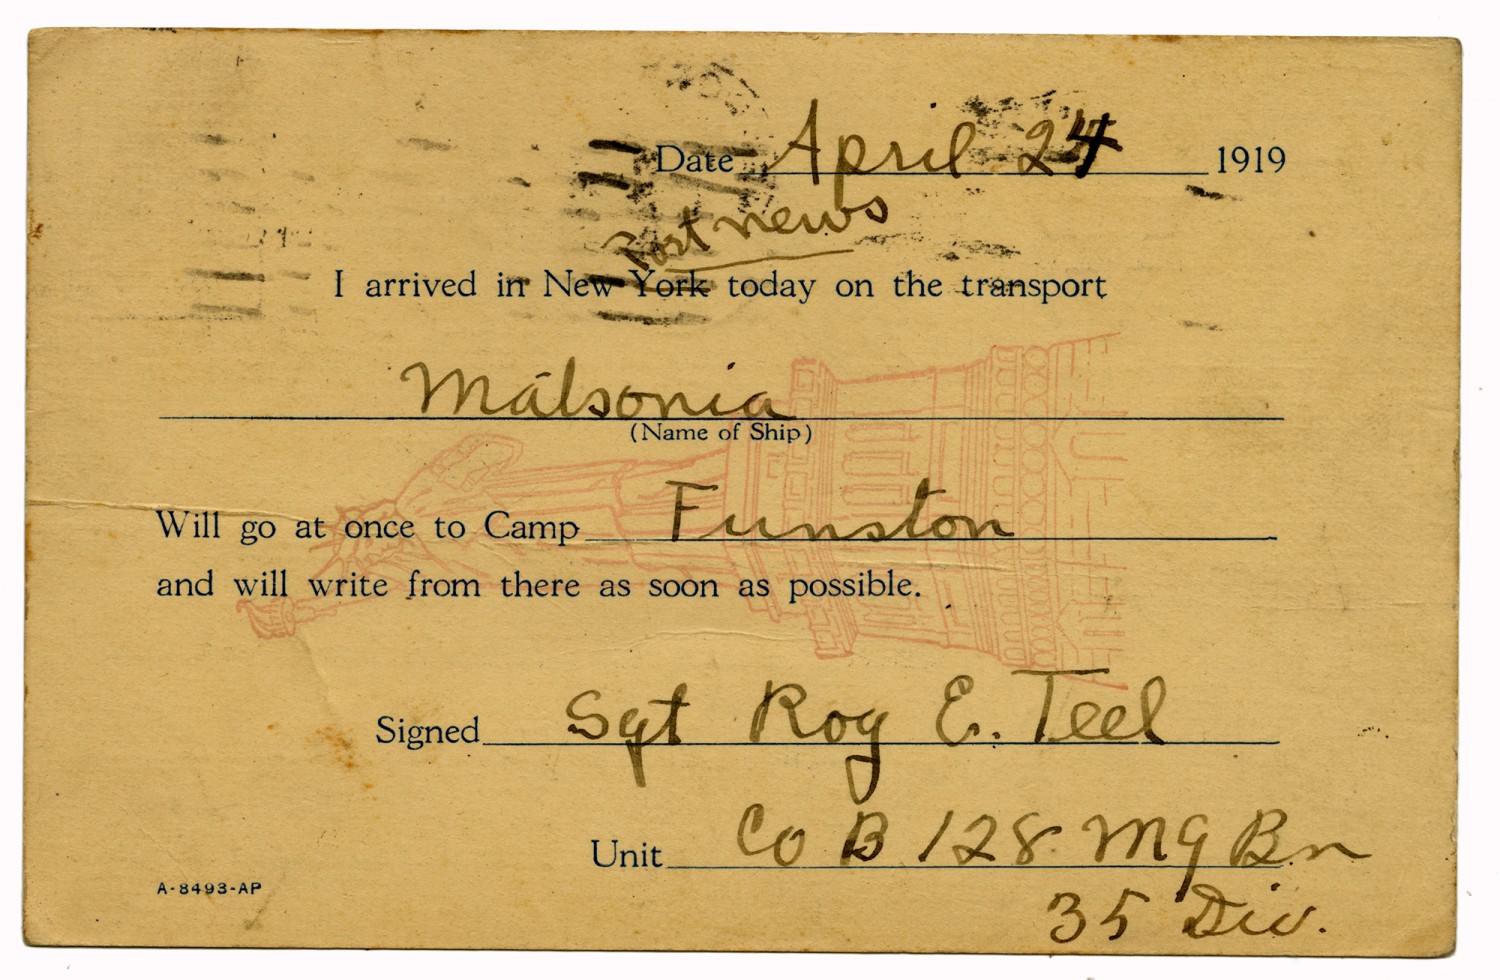 Date April 24 1919
Port news
I arrived in New York today on the transport
Malsonia
(Name of Ship)
Will go at once to Camp Funston
and will write from there as soon as possible.
Signed Sgt Roy E. Teel
Unit Co B 128 MG Bn
35 Div.
A-8493-AP